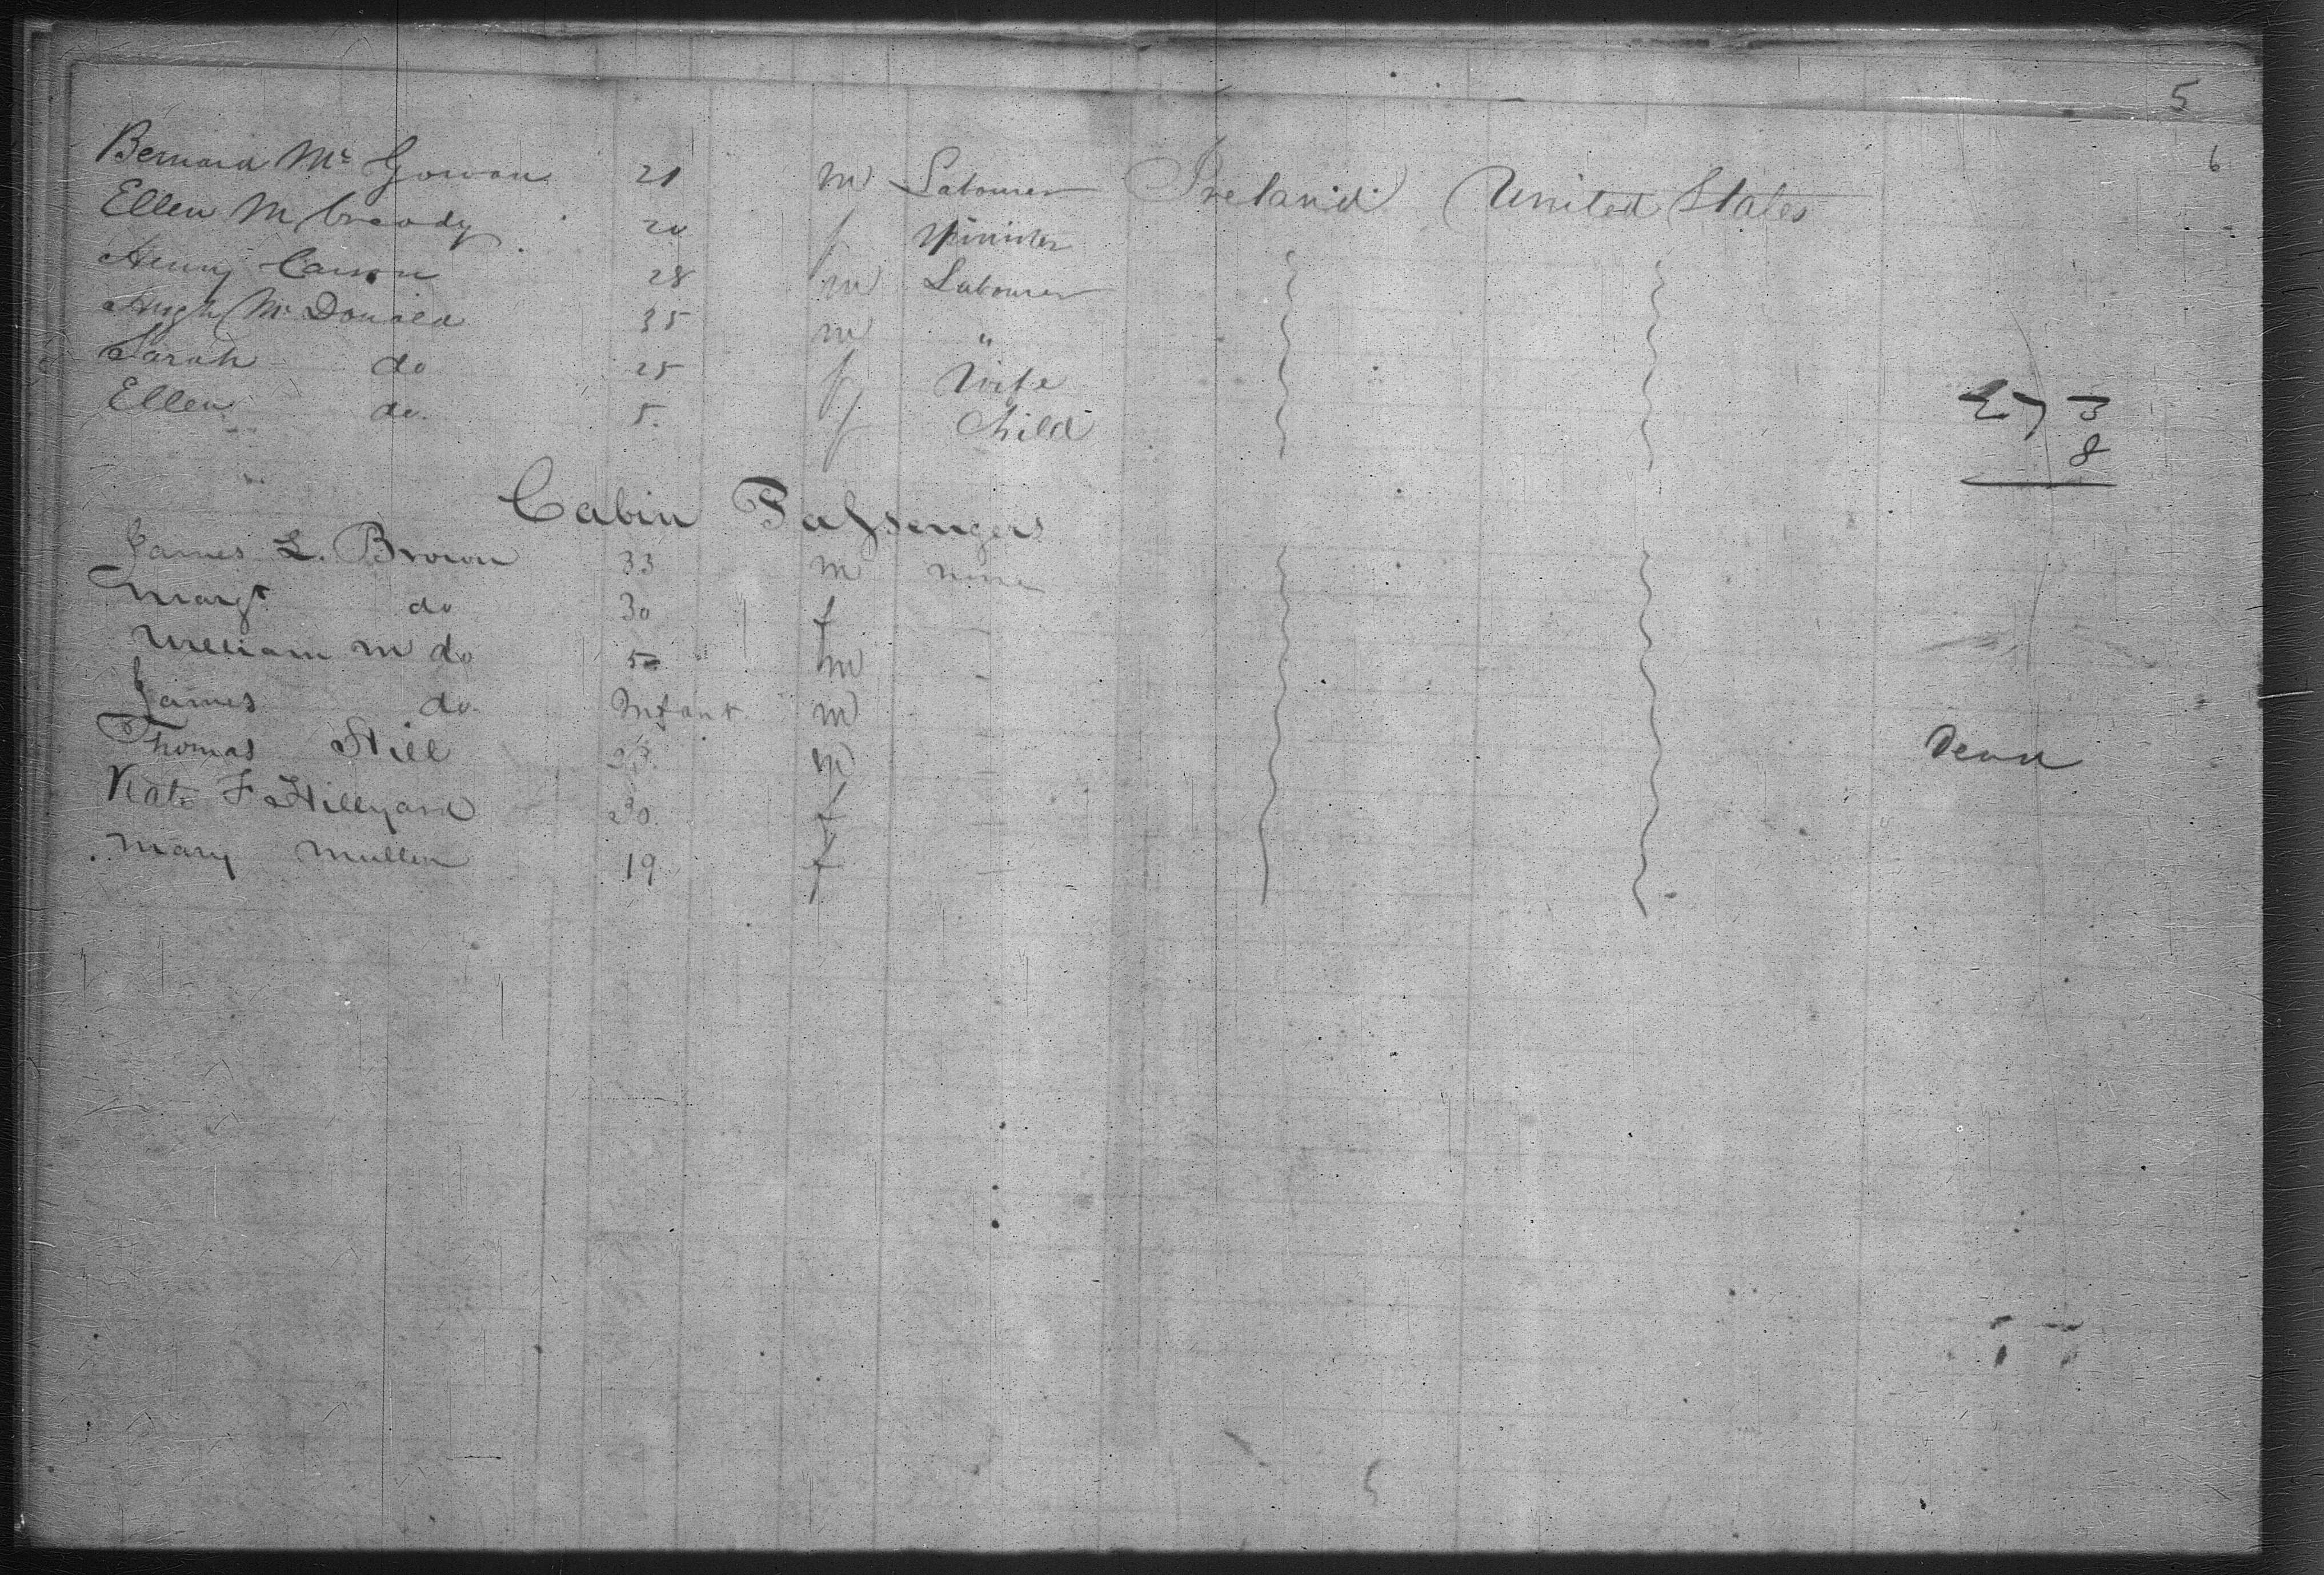 5
6
Bernard Mc Gowan 21 m Labourer Ireland United States
Ellen McCready 20 f Spinister
Henry Carson 28 m Labourer
Hugh Mc Donald 35 m "
Sarah do 25 f Wife
Ellen do. 5. f Child
273
8
Cabin Passengers
James L. Brown 33 m none
Margt do 30 f -
William M do 5 m -
James do. Infant m -
Thomas Hill 23. m - Dead
Kate F Hillyard 20. f -
Mary Mullen 19 f -